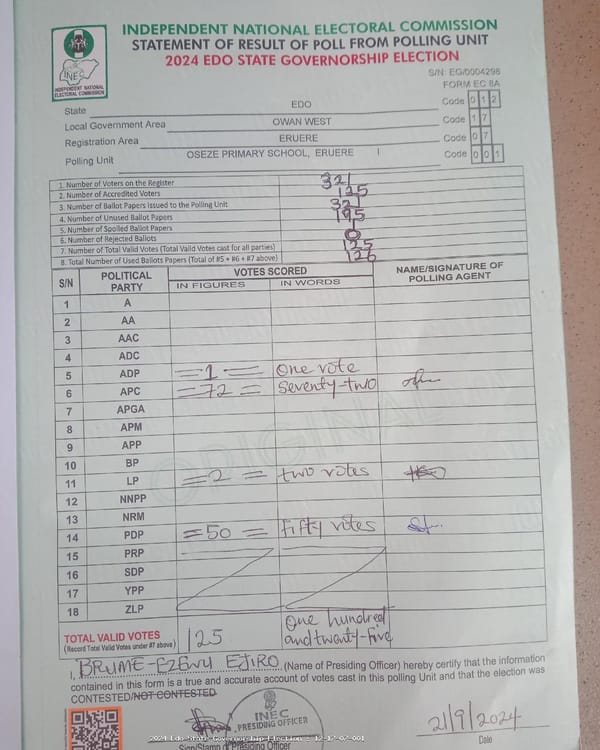 INDEPENDENT NATIONAL ELECTORAL COMMISSION
STATEMENT OF RESULT OF POLL FROM POLLING UNIT
2024 EDO STATE GOVERNORSHIP ELECTION
INEC
INDEPENDENT NATIONAL
ELECTORAL COMMISSION
S/N: EG/0004298
FORM EC 8A
State EDO Code 0 1 2
Local Government Area OWAN WEST Code 1 7
Registration Area ERUERE Code 0 7
Polling Unit OSEZE PRIMARY SCHOOL, ERUERE I Code 0 0 1
1. Number of Voters on the Register 321
2. Number of Accredited Voters 125
3. Number of Ballot Papers Issued to the Polling Unit 321
4. Number of Unused Ballot Papers 195
5. Number of Spoiled Ballot Papers 1
6. Number of Rejected Ballots 0
7. Number of Total Valid Votes (Total Valid Votes cast for all parties) 125
8. Total Number of Used Ballots Papers (Total of #5 + #6 + #7 above) 126
S/N POLITICAL PARTY VOTES SCORED NAME/SIGNATURE OF POLLING AGENT
IN FIGURES IN WORDS
1 A
2 AA
3 AAC
4 ADC
5 ADP =1= One vote
6 APC =72= Seventy-two
7 APGA
8 APM
9 APP
10 BP
11 LP =2= two votes
12 NNPP
13 NRM
14 PDP =50= fifty votes
15 PRP
16 SDP
17 YPP
18 ZLP
ORIGINAL
TOTAL VALID VOTES 125 One hundred and twenty-five
(Record Total Valid Votes under #7 above)
I, BRUME-EZEWU EJIRO (Name of Presiding Officer) hereby certify that the information
contained in this form is a true and accurate account of votes cast in this polling Unit and that the election was
CONTESTED/NOT CONTESTED
INEC
PRESIDING OFFICER
21/9/2024
Date
2024 Edo State Governorship Election - 12-17-07-001
Sign/Stamp of Presiding Officer